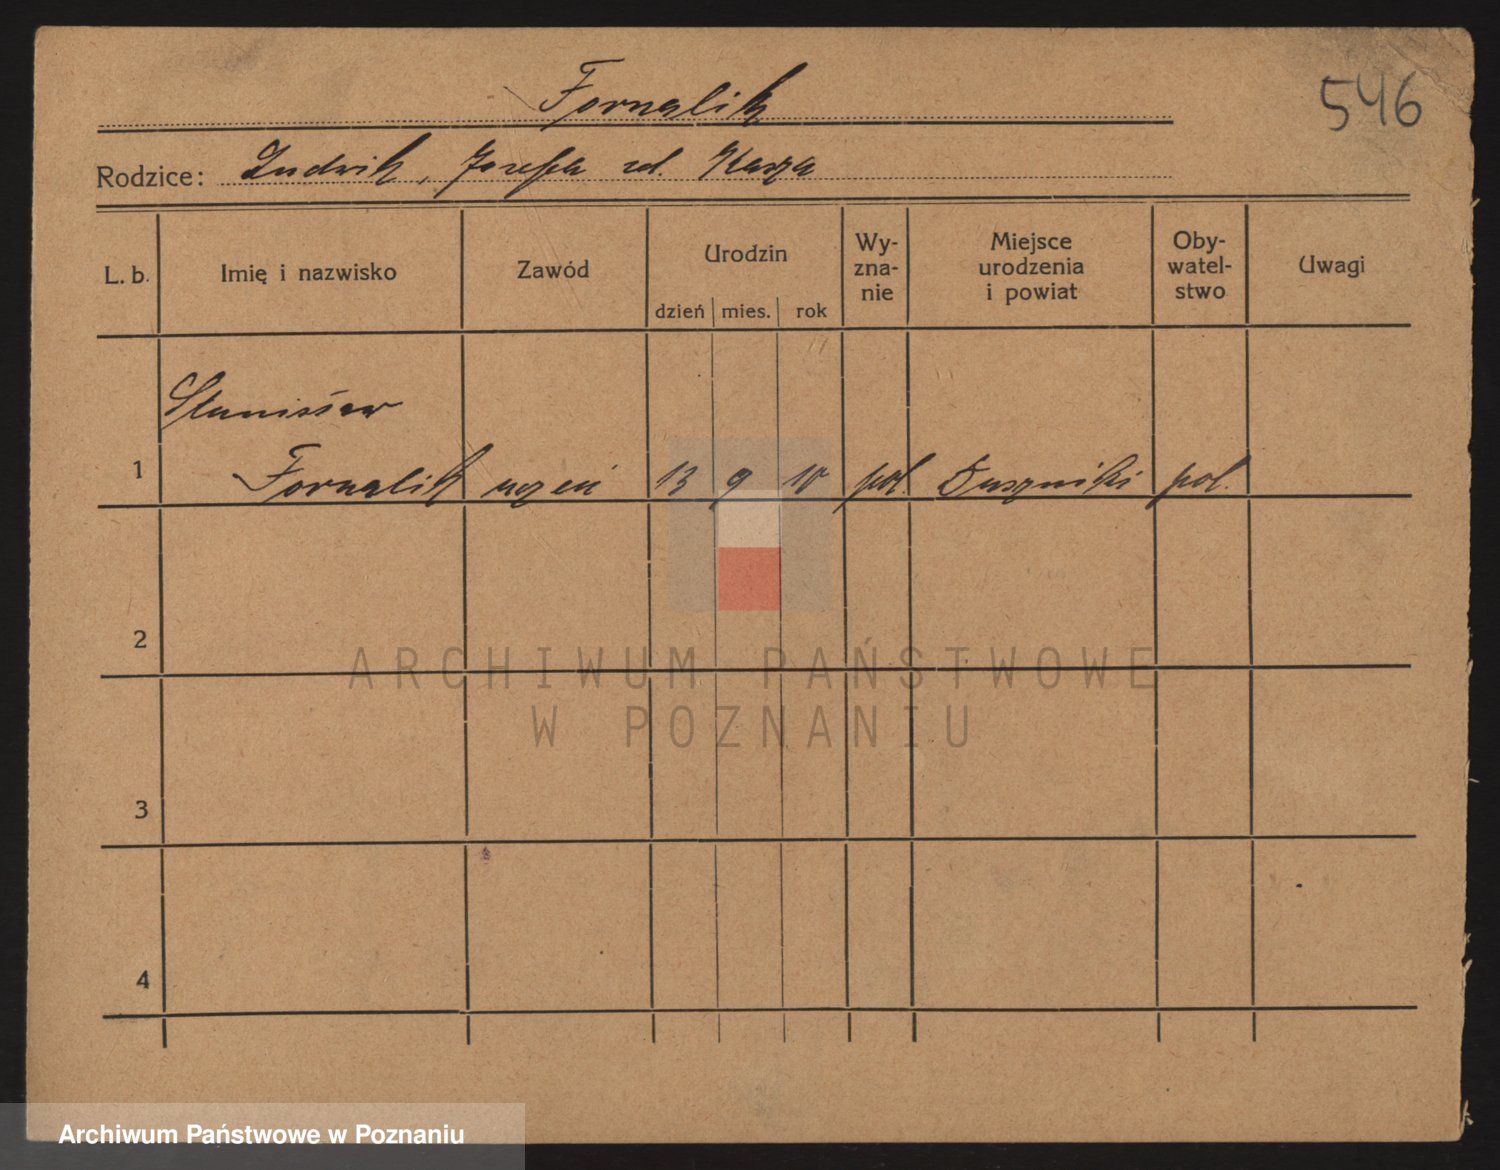 Fornalik
546
Rodzice: Ludwik, Josefa zd. Kasza
L. b.
Imię i nazwisko
Zawód
Urodzin
dzień mies. rok
Wy-
zna-
nie
Miejsce
urodzenia
i powiat
Oby-
watel-
stwo
Uwagi
Stanisław
1 Fornalik uczeń 13 9 10 pol. Duszniki pol.
2
3
4
ARCHIWUM PAŃSTWOWE
W POZNANIU
Archiwum Państwowe w Poznaniu